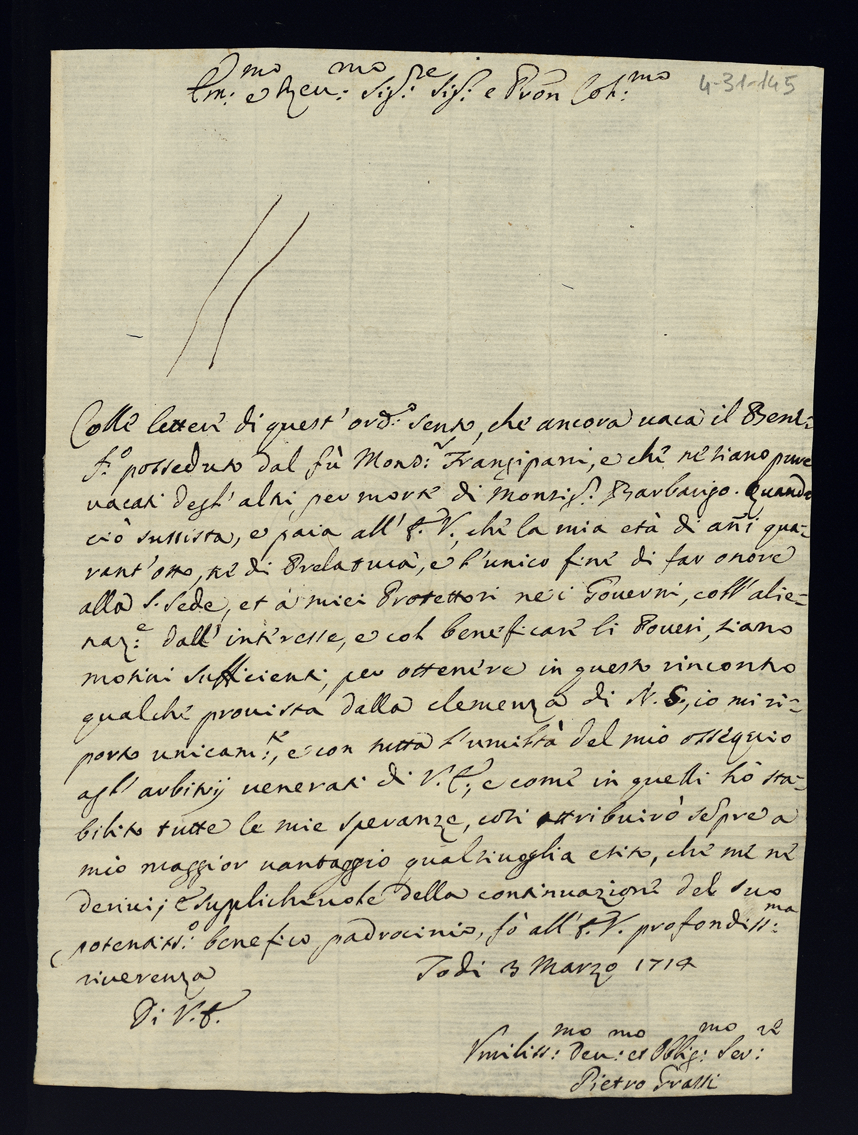 Em:mo e Reu:mo Sig:re Sig:re e Pron Col:mo
4-31-145
Colle lettere di quest' ord:o sento, che ancora uaca il Benef:
f:o posseduto dal fù Mons:r Frangipani, e che ne siano pure
uacati degl' altri per morte di Monsig:r Barbarigo. Quando
ciò sussista, e paia all' E. V., che la mia età di añi qua-
rant' otto, ne di Prelatura, e l' unico fine di far onore
alla S. Sede, et à miei Protettori ne i Gouerni, coll' alie-
naz:e dall' interesse, e col beneficare li Poueri, siano
motiui sufficienti, per ottenere in questo rincontro
qualche prouista dalla clemenza di N. S., io mi ri-
porto unicam:te, e con tutta l' umiltà del mio ossequio
agl' arbitrij uenerati di V. E., e come in quelli hò sta-
bilito tutte le mie speranze, così attribuirò sepre a
mio maggior uantaggio qualsiuoglia esito, che me ne
deriui; e supplicheuole della continuazione del suo
potentiss:o benefico padrocinio, fò all' E. V. profondiss:ma
riuerenza
Todi 3 Marzo 1714
Di V. E.
Vmiliss:mo deu:mo et Oblig:mo Ser:re
Pietro Grassi